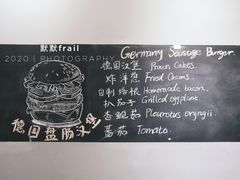 默默frail
2020 | PHOTOGRAPHY
德国盘肠汉堡
Germany Sausage Burger.
德国汉堡 Prawn Cakes.
炸洋葱 Fried Onions.
自制培根 Homemade bacon.
扒茄子 Grilled eggplant.
杏鲍菇 Pleurotus eryngii.
蕃茄 Tomato.